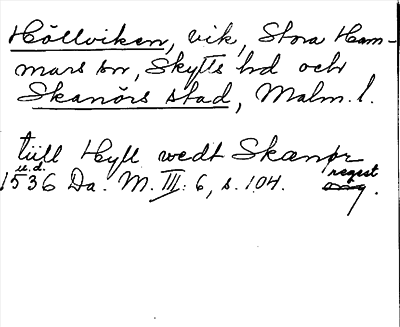 Höllviken, vik, Stora Ham-
mars sn, Skytts hd och
Skanörs stad, Malm. l.
tiill Hyll wedt Skanør
u.d.
1536 Da. M. III: 6, s. 104. regest